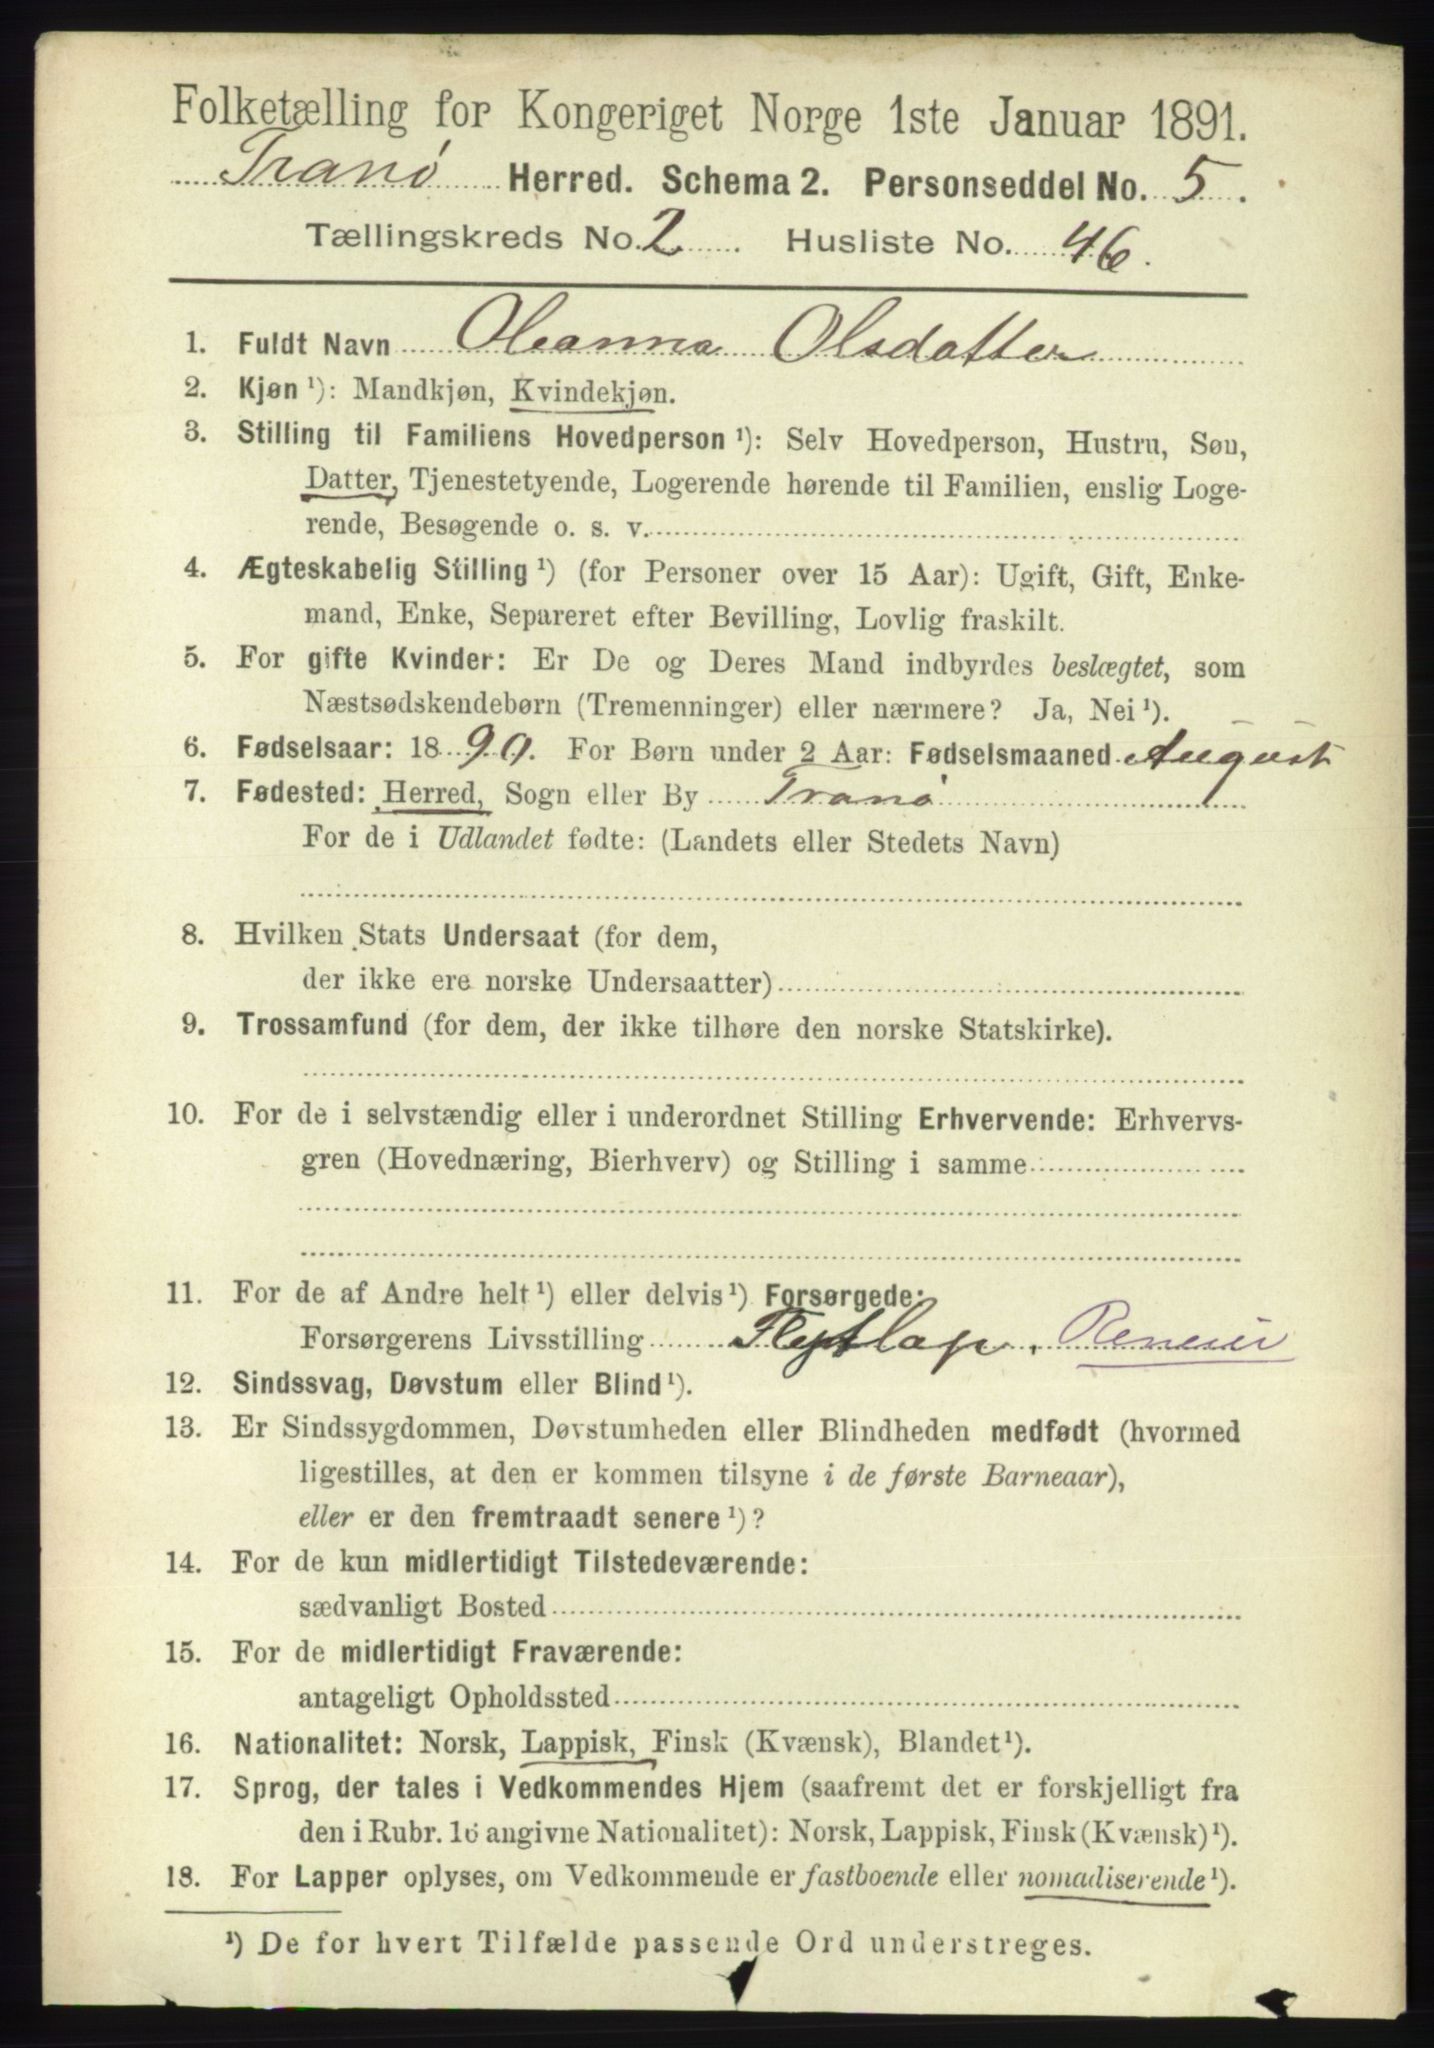 Folketælling for Kongeriget Norge 1ste Januar 1891.
Tranø Herred. Schema 2. Personseddel No. 5.
Tællingskreds No. 2. Husliste No. 46.
1. Fuldt Navn Oleanna Olsdatter
2. Kjøn ¹): Mandkjøn, Kvindekjøn.
3. Stilling til Familiens Hovedperson ¹): Selv Hovedperson, Hustru, Søn,
Datter, Tjenestetyende, Logerende hørende til Familien, enslig Loge-
rende, Besøgende o. s. v.
4. Ægteskabelig Stilling ¹) (for Personer over 15 Aar): Ugift, Gift, Enke-
mand, Enke, Separeret efter Bevilling, Lovlig fraskilt.
5. For gifte Kvinder: Er De og Deres Mand indbyrdes beslægtet, som
Næstsødskendebørn (Tremenninger) eller nærmere? Ja, Nei ¹).
6. Fødselsaar: 1890. For Børn under 2 Aar: Fødselsmaaned August
7. Fødested: Herred, Sogn eller By Tranø
For de i Udlandet fødte: (Landets eller Stedets Navn)
8. Hvilken Stats Undersaat (for dem,
der ikke ere norske Undersaatter)
9. Trossamfund (for dem, der ikke tilhøre den norske Statskirke).
10. For de i selvstændig eller i underordnet Stilling Erhvervende: Erhvervs-
gren (Hovednæring, Bierhverv) og Stilling i samme
11. For de af Andre helt ¹) eller delvis ¹) Forsørgede:
Forsørgerens Livsstilling Flytlap. Reneier
12. Sindssvag, Døvstum eller Blind ¹).
13. Er Sindssygdommen, Døvstumheden eller Blindheden medfødt (hvormed
ligestilles, at den er kommen tilsyne i de første Barneaar),
eller er den fremtraadt senere ¹)?
14. For de kun midlertidigt Tilstedeværende:
sædvanligt Bosted
15. For de midlertidigt Fraværende:
antageligt Opholdssted
16. Nationalitet: Norsk, Lappisk, Finsk (Kvænsk), Blandet ¹).
17. Sprog, der tales i Vedkommendes Hjem (saafremt det er forskjelligt fra
den i Rubr. 16 angivne Nationalitet): Norsk, Lappisk, Finsk (Kvænsk) ¹).
18. For Lapper oplyses, om Vedkommende er fastboende eller nomadiserende ¹).
¹) De for hvert Tilfælde passende Ord understreges.